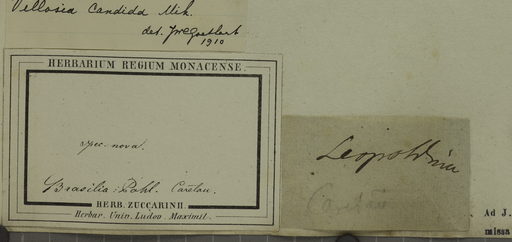 Vellosia candida Mik.
det.
1910
HERBARIUM REGIUM MONACENSE.
spec. nova.
Brasilia: Pohl.
HERB. ZUCCARINII.
Herbar. Univ. Ludov. Maximil.
Leopoldina
Ad J.
missa